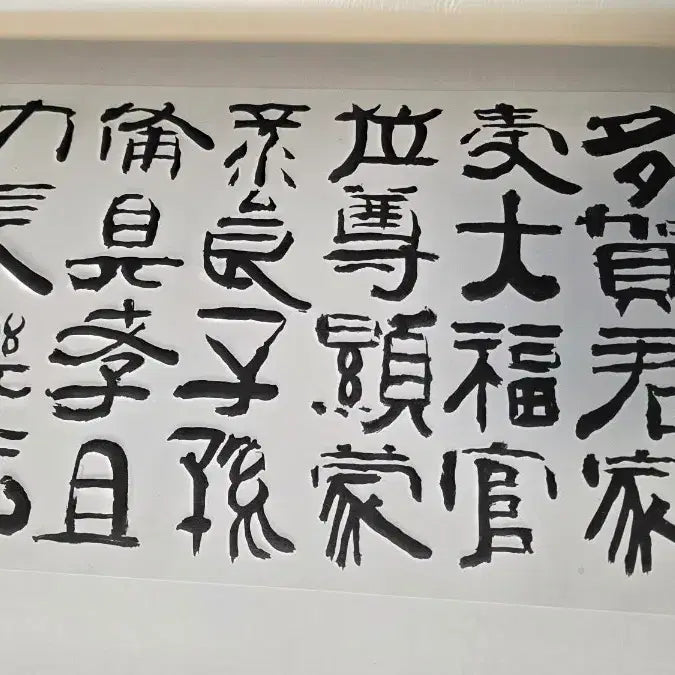 多賀君家
受大福官
位尊顯蒙
食子孫
備具孝且
力長